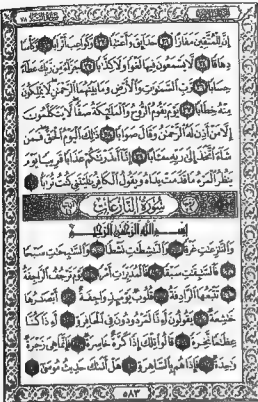 إِنَّ لِلْمُتَّقِينَ مَفَازًا ٣١ حَدَائِقَ وَأَعْنَابًا ٣٢ وَكَوَاعِبَ أَتْرَابًا ٣٣ وَكَأْسًا
دِهَاقًا ٣٤ لَّا يَسْمَعُونَ فِيهَا لَغْوًا وَلَا كِذَّابًا ٣٥ جَزَاءً مِّن رَّبِّكَ عَطَاءً
حِسَابًا ٣٦ رَّبِّ السَّمَاوَاتِ وَالْأَرْضِ وَمَا بَيْنَهُمَا الرَّحْمَٰنِ لَا يَمْلِكُونَ
مِنْهُ خِطَابًا ٣٧ يَوْمَ يَقُومُ الرُّوحُ وَالْمَلَائِكَةُ صَفًّا لَّا يَتَكَلَّمُونَ
إِلَّا مَنْ أَذِنَ لَهُ الرَّحْمَٰنُ وَقَالَ صَوَابًا ٣٨ ذَٰلِكَ الْيَوْمُ الْحَقُّ فَمَن
شَاءَ اتَّخَذَ إِلَىٰ رَبِّهِ مَآبًا ٣٩ إِنَّا أَنذَرْنَاكُمْ عَذَابًا قَرِيبًا يَوْمَ
يَنظُرُ الْمَرْءُ مَا قَدَّمَتْ يَدَاهُ وَيَقُولُ الْكَافِرُ يَا لَيْتَنِي كُنتُ تُرَابًا ٤٠
سُورَةُ النَّازِعَاتِ
بِسْمِ اللَّهِ الرَّحْمَٰنِ الرَّحِيمِ
وَالنَّازِعَاتِ غَرْقًا ١ وَالنَّاشِطَاتِ نَشْطًا ٢ وَالسَّابِحَاتِ سَبْحًا
٣ فَالسَّابِقَاتِ سَبْقًا ٤ فَالْمُدَبِّرَاتِ أَمْرًا ٥ يَوْمَ تَرْجُفُ الرَّاجِفَةُ
٦ تَتْبَعُهَا الرَّادِفَةُ ٧ قُلُوبٌ يَوْمَئِذٍ وَاجِفَةٌ ٨ أَبْصَارُهَا
خَاشِعَةٌ ٩ يَقُولُونَ أَإِنَّا لَمَرْدُودُونَ فِي الْحَافِرَةِ ١٠ أَإِذَا كُنَّا
عِظَامًا نَّخِرَةً ١١ قَالُوا تِلْكَ إِذًا كَرَّةٌ خَاسِرَةٌ ١٢ فَإِنَّمَا هِيَ زَجْرَةٌ
وَاحِدَةٌ ١٣ فَإِذَا هُم بِالسَّاهِرَةِ ١٤ هَلْ أَتَاكَ حَدِيثُ مُوسَىٰ ١٥
٥٨٣